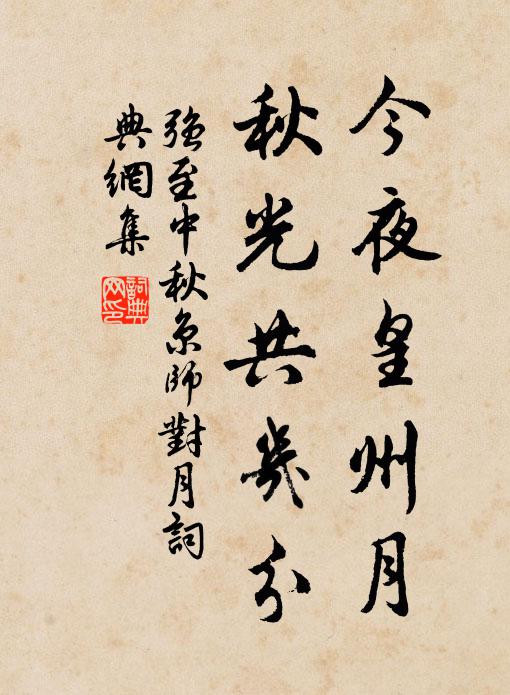 今夜皇州月
秋光共幾分
強至中秋京師對月詞
典網集
詞典
网印